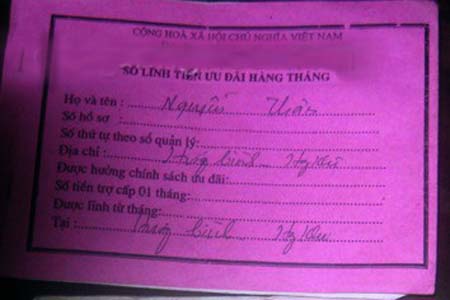 CỘNG HOÀ XÃ HỘI CHỦ NGHĨA VIỆT NAM
SỔ LĨNH TIỀN ƯU ĐÃI HÀNG THÁNG
Họ và tên : Nguyễn
Số hồ sơ :
Số thứ tự theo sổ quản lý:
Địa chỉ :
Được hưởng chính sách ưu đãi:
Số tiền trợ cấp 01 tháng:
Được lĩnh từ tháng:
Tại :